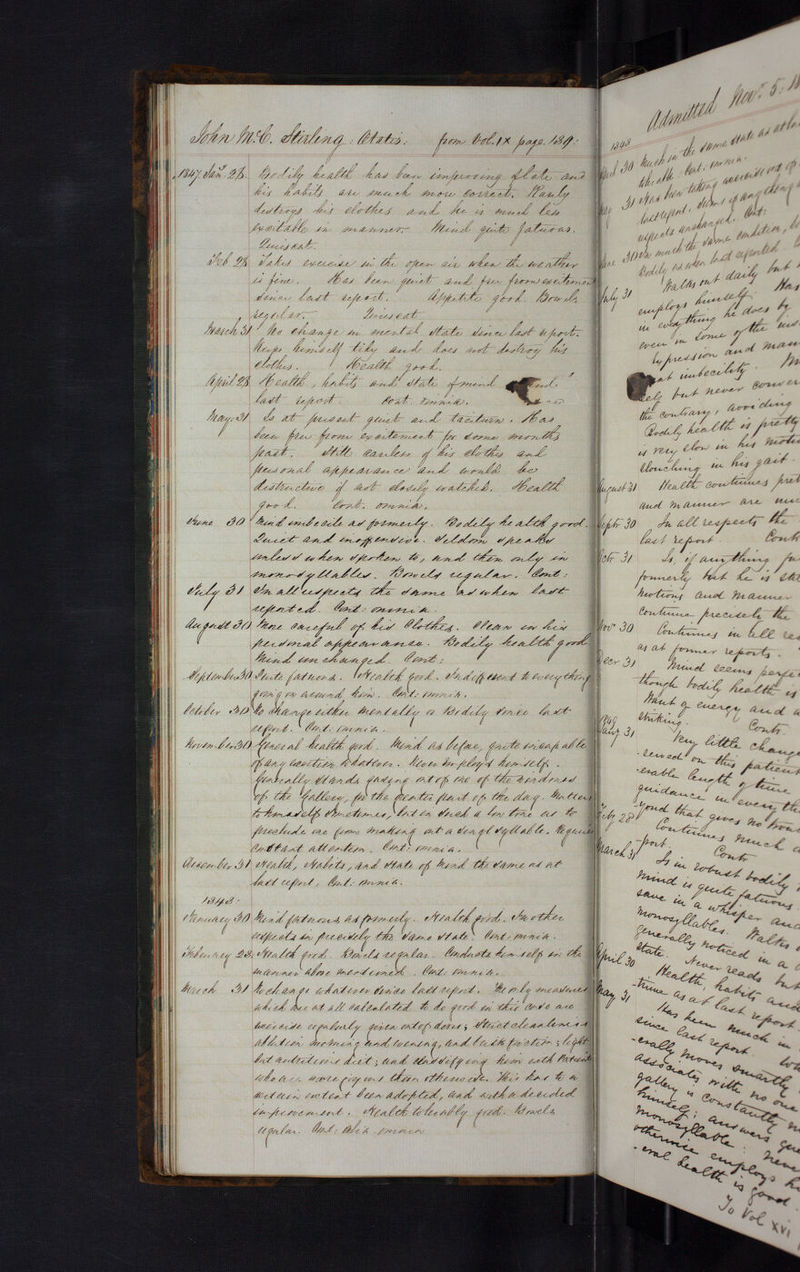 John McC. Stirling. Aetatis. from Vol. IX page 139.
1847 Jan. 28. Bodily health has been improving of late and
his habits are much more correct. Rarely
destroys his clothes and he is much less
excitable in manner. Mind quite fatuous.
Quiescat.
Feb 28 Takes exercise in the open air when the weather
is fine. Has been quiet and free from excitement
since last report. Appetite good. Bowels
regular. Quiescat
March 31 No change in mental state since last report.
Keeps himself tidy and does not destroy his
clothes. Health good.
April 28 Health, habits and state of mind
last report. Cont. omnia.
May 31 Is at present quiet and taciturn. Has
been free from excitement for some months
past. Still careless of his clothes and
personal appearance and would be
destructive if not closely watched. Health
good. Cont. omnia.
June 30 Mind imbecile as formerly. Bodily health good.
Quiet and inoffensive. Seldom speaks
unless when spoken to, and then only in
monosyllables. Bowels regular. Cont:
July 31 In all respects the same as when last
reported. Cont: omnia.
August 30 More careful of his Clothes. Clean in his
personal appearance. Bodily health good
Mind unchanged. Cont:
September 30 Quite fatuous. Health good. Indifferent to everything
going on around him. Cont: omnia.
October 31 No change either mentally or bodily since last
report. Cont. omnia.
November 30 General health good. Mind as before, quite incapable
of any exertion whatever. Never employs himself.
Generally stands gazing out of one of the windows
of the Gallery, for the greater part of the day. Mutters
to himself sometimes, but in such a low tone as to
preclude one from making out a single syllable. Requires
constant attention. Cont: omnia.
December 31 Health, Habits, and state of mind the same as at
last report. Cont: omnia.
1848
January 30 Mind fatuous as formerly. Health good. In other
respects in precisely the same state. Cont: omnia.
February 28. Health good. Bowels regular. Conducts himself in the
manner above mentioned. Cont. omnia.
March 31 No change whatever since last report. The only measures
which are at all calculated to do good in this case are
exercise regularly given out of doors; strict cleanliness
ablution morning and evening, and brisk friction; light
but nutritious diet; and classifying him with Patients
who are more than otherwise. This has to a
certain extent been adopted, and with a decided
improvement. Health tolerably good. Bowels
regular. Cont: omnia
Admitted Novr. 5. 18
1848
30 Much in the same state as at la
Cont. omnia.
31 Has been taking exercise out of
last report. Seems if anything
respects unchanged. Cont:
June 30 In much the same condition, b
Bodily as when last reported
July 31 Walks out daily but
employs himself. Has
in everything he does by
even in some of the
expression and mann
imbecility.
but never conver
the contrary, avoiding
Bodily health is pretty
is very slow in his motio
slouching in his gait.
August 31 Health continues pret
and manner are
Septr 30 In all respects the
last report Cont
Octr 31 Is, if anything
formerly but he is sti
motions and manner
continue precisely the
Novr 30 Continues in all res
as at former reports.
Decr 31 Mind seems perfe
though bodily health is
Want of energy and a
striking. Cont.
1849
Jany 31 Very little change
ceived on this patient
erable length of time
guidance in every th
yond that gives no troub
Feby 28 Continues much a
port. Cont
March 31 Is in robust bodily
mind is quite fatuous
save in a whisper and
monosyllables. Walks
generally noticed in a
state. Never reads but
April 30 Health, habits and
time as at last report
May 31 Has been much in
since last report.
erally moves smartly
associates with no one
gallery is constantly
himself; answers que
monosyllable: never
otherwise employs h
eral health is good.
To Vol XVI